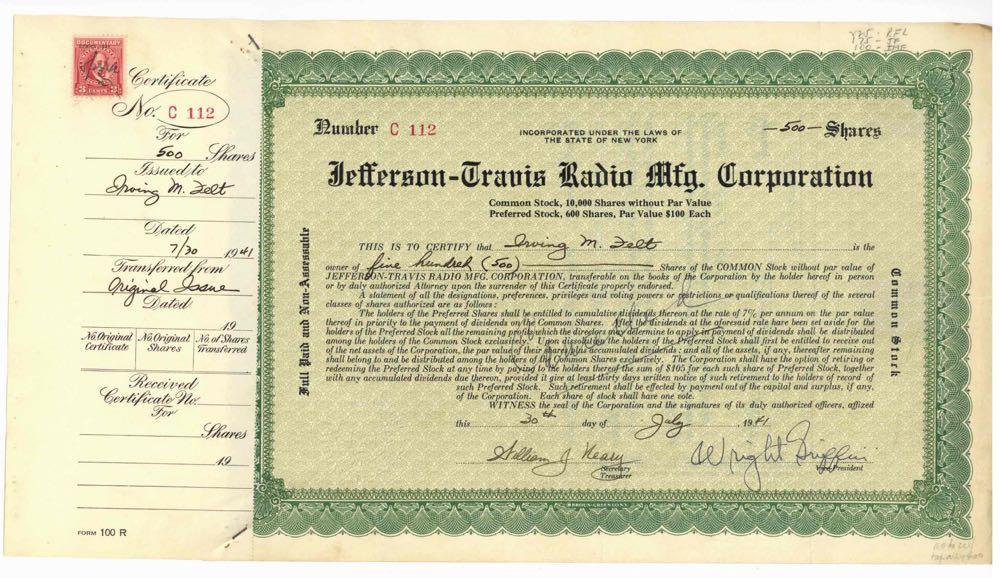 725 - RFL
75 - TF
100 - IMF
DOCUMENTARY
3 CENTS 3
Certificate
No. C 112
For
500 Shares
Issued to
Irving M. Felt
Dated
7/30 1941
Transferred from
Original Issue
Dated
19
No. Original Certificate
No. Original Shares
No. of Shares Transferred
Received
Certificate No.
For
Shares
19
FORM 100 R
Number C 112
INCORPORATED UNDER THE LAWS OF
THE STATE OF NEW YORK
—500— Shares
Jefferson-Travis Radio Mfg. Corporation
Common Stock, 10,000 Shares without Par Value
Preferred Stock, 600 Shares, Par Value $100 Each
Full Paid and Non-Assessable
Common Stock
THIS IS TO CERTIFY that Irving M. Felt is the
owner of five hundred (500) Shares of the COMMON Stock without par value of
JEFFERSON-TRAVIS RADIO MFG. CORPORATION, transferable on the books of the Corporation by the holder hereof in person
or by duly authorized Attorney upon the surrender of this Certificate properly endorsed.
A statement of all the designations, preferences, privileges and voting powers or restrictions or qualifications thereof of the several
classes of shares authorized are as follows:
The holders of the Preferred Shares shall be entitled to cumulative dividends thereon at the rate of 7% per annum on the par value
thereof in priority to the payment of dividends on the Common Shares. After the dividends at the aforesaid rate have been set aside for the
holders of the Preferred Stock all the remaining profits which the directors may determine to apply in payment of dividends shall be distributed
among the holders of the Common Stock exclusively. Upon dissolution the holders of the Preferred Stock shall first be entitled to receive out
of the net assets of the Corporation, the par value of their shares plus accumulated dividends: and all of the assets, if any, thereafter remaining
shall belong to and be distributed among the holders of the Common Shares exclusively. The Corporation shall have the option of retiring or
redeeming the Preferred Stock at any time by paying to the holders thereof the sum of $105 for each such share of Preferred Stock, together
with any accumulated dividends due thereon, provided it give at least thirty days written notice of such retirement to the holders of record of
such Preferred Stock. Such retirement shall be effected by payment out of the capital and surplus, if any,
of the Corporation. Each share of stock shall have one vote.
WITNESS the seal of the Corporation and the signatures of its duly authorized officers, affixed
this 30th day of July, 1941
William J Neary
Secretary
Treasurer
Wright Griffin
Vice President